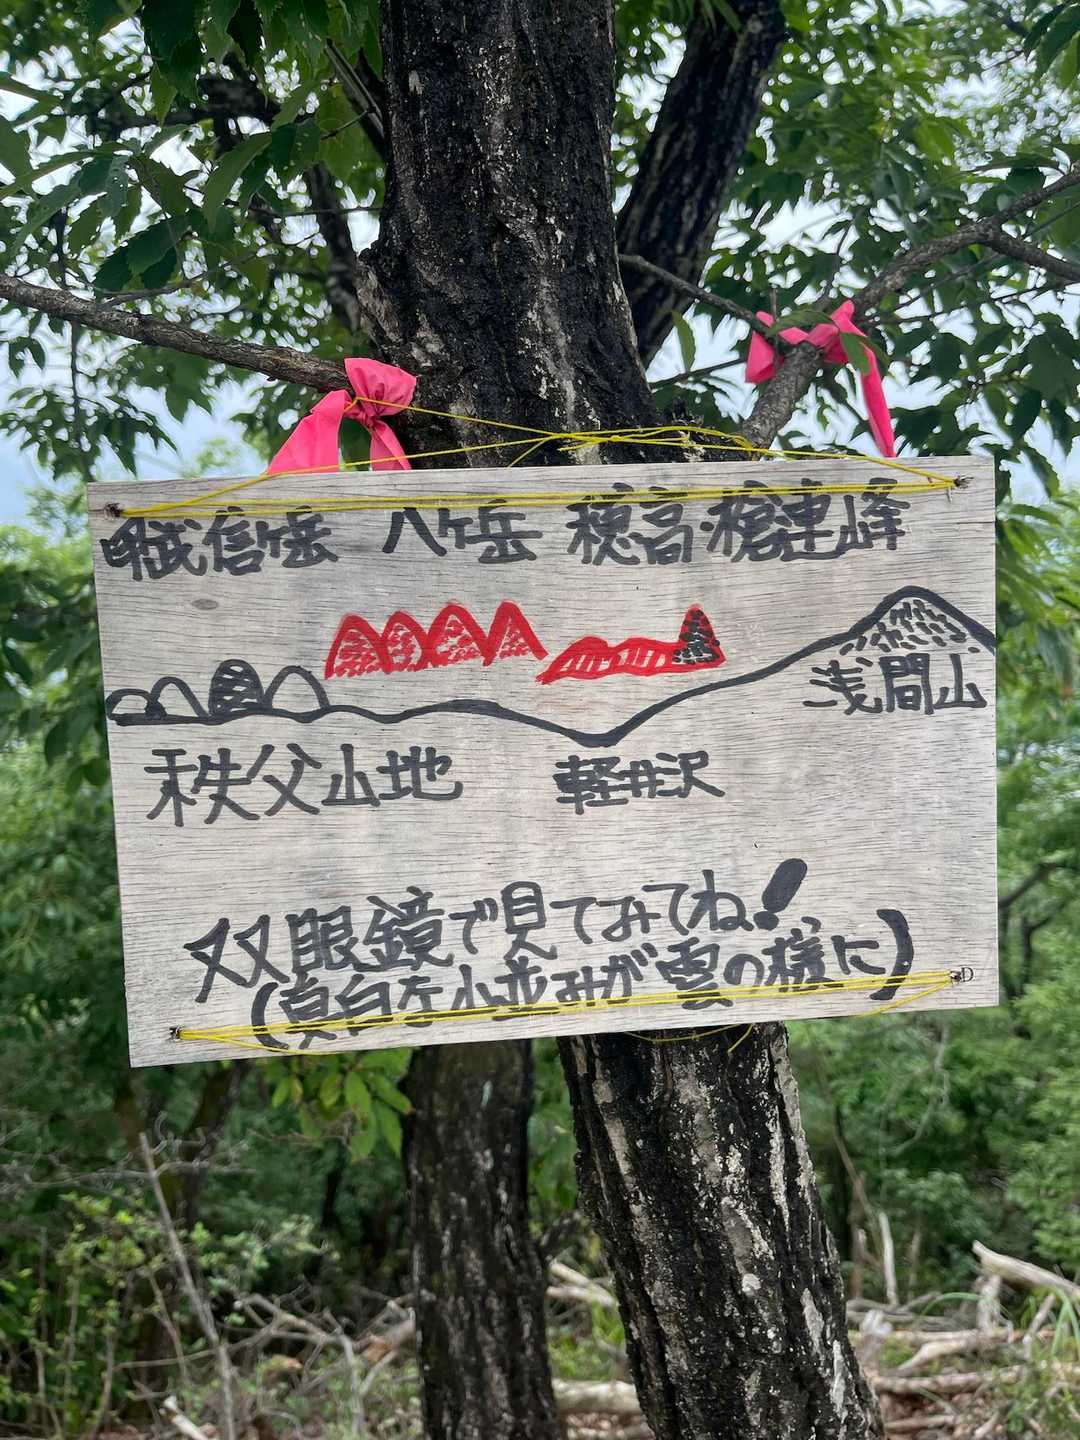 甲武信ヶ岳 八ヶ岳 穂高・槍連峰
浅間山
秩父山地 軽井沢
双眼鏡で見てみてね！
(真白な山並みが雲の様に)